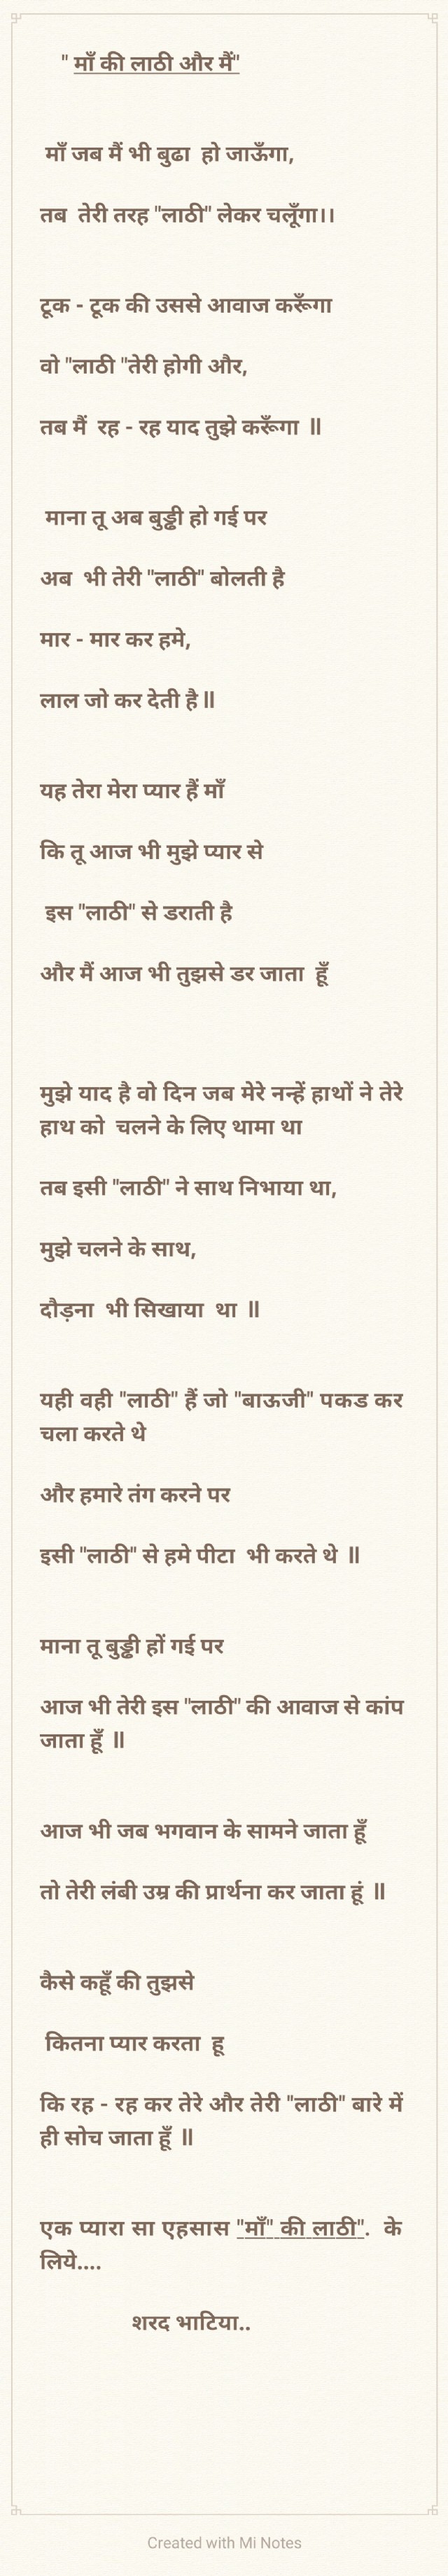 " माँ की लाठी और मैं"
माँ जब मैं भी बुढा हो जाऊँगा,
तब तेरी तरह "लाठी" लेकर चलूँगा।।
टूक - टूक की उससे आवाज करूँगा
वो "लाठी "तेरी होगी और,
तब मैं रह - रह याद तुझे करूँगा ॥
माना तू अब बुड्ढी हो गई पर
अब भी तेरी "लाठी" बोलती है
मार - मार कर हमे,
लाल जो कर देती है॥
यह तेरा मेरा प्यार हैं माँ
कि तू आज भी मुझे प्यार से
इस "लाठी" से डराती है
और मैं आज भी तुझसे डर जाता हूँ
मुझे याद है वो दिन जब मेरे नन्हें हाथों ने तेरे
हाथ को चलने के लिए थामा था
तब इसी "लाठी" ने साथ निभाया था,
मुझे चलने के साथ,
दौड़ना भी सिखाया था ॥
यही वही "लाठी" हैं जो "बाऊजी" पकड कर
चला करते थे
और हमारे तंग करने पर
इसी "लाठी" से हमे पीटा भी करते थे ॥
माना तू बुड्ढी हों गई पर
आज भी तेरी इस "लाठी" की आवाज से कांप
जाता हूँ ॥
आज भी जब भगवान के सामने जाता हूँ
तो तेरी लंबी उम्र की प्रार्थना कर जाता हूं ॥
कैसे कहूँ की तुझसे
कितना प्यार करता हू
कि रह - रह कर तेरे और तेरी "लाठी" बारे में
ही सोच जाता हूँ ॥
एक प्यारा सा एहसास "माँ" की लाठी". के
लिये....
शरद भाटिया..
Created with Mi Notes